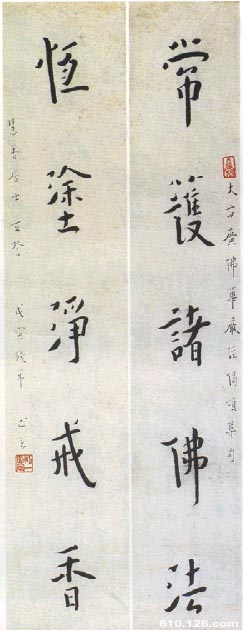 大方廣佛華嚴經偈頌集句
常護諸佛法
恆塗淨戒香
居士
戊寅殘年
610.126.com